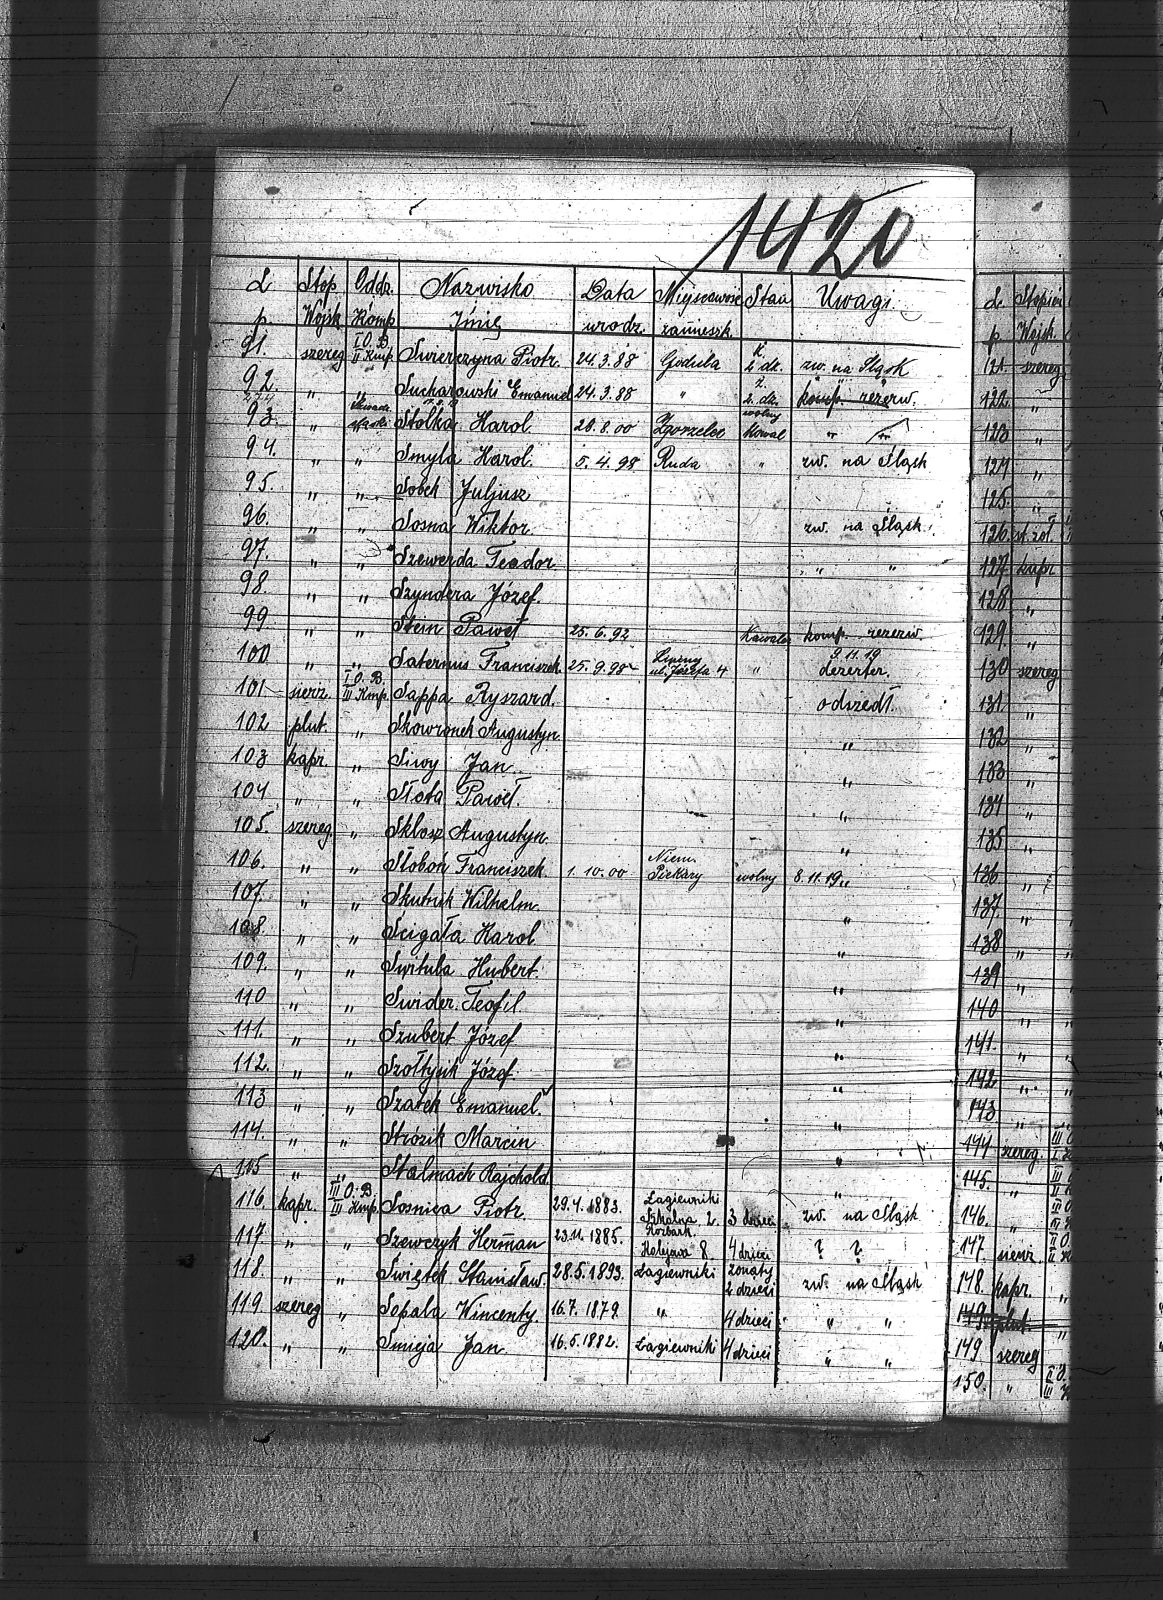 1420
L Stop Oddz. Nazwisko Data Miejscowość Stan Uwagi
p. Wojsk Komp Imię urodz zamieszk.
91. szereg I O.B. II Kmp Swierczyna Piotr. 24.3.88 Godula ż. 2 dz. zw. na Śląsk
92. " " Sucharowski Emanuel 24.3.88 " ż. 2 dz. komp. rezerw.
93. " Stolka Karol. 28.8.00 Zgorzelec wolny Kowal "
94. " " Smyla Karol. 5.4.98 Ruda " zw. na Śląsk
95. " " Sobek Juljusz
96. " " Sosna Wiktor. zw. na Śląsk.
97. " " Szewerda Teodor " "
98. " " Szyndera Józef.
99 " " Stein Paweł 25.6.92 Kawaler komp. rezerw.
100. " " Saternus Franciszek 25.9.98 Lipiny ul. Józefa 4 " 9.11.19 dezerter.
101 sierż I O.B. III Kmp. Sappa Ryszard. odszedł.
102 plut. " Skowronek Augustyn. "
103 kapr. " Siwy Jan "
104 " " Słota Paweł. "
105. szereg. " Sklosz Augustyn. "
106. " " Słoboń Franciszek. 1.10.00 Niem. Piekary wolny 8.11.19 "
107. " " Skutnik Wilhelm "
108. " " Ścigała Karol "
109. " " Switula Hubert. "
110 " " Swider. Teofil. "
111. " " Szubert Józef "
112. " " Szołtysik Józef. "
113 " " Szatek Emanuel. "
114. " " Stózik Marcin "
115 " " Stalmach Rajchold "
116. kapr. III O.B. III Kmp. Sosnica Piotr. 29.4.1883. Łagiewniki Szkolna 2. 3 dzieci zw. na Śląsk
117 " " Szewczyk Herman 23.11.1885. Rozbark. Kolejowa 8. 4 dzieci ? ?
118 " " Świątek Stanisław. 28.5.1893. Łagiewniki żonaty 2 dzieci zw. na Śląsk
119 szereg " Sopala Wincenty. 16.7.1879. " 4 dzieci " "
120. " " Smieja Jan 16.5.1882. Łagiewniki 4 dzieci " "
L Stopień
p Wojsk.
121. szereg
122. "
123 "
124 "
125. "
126. st.żoł.
127 kapr
128 "
129. "
130 szereg
131 "
132 "
133 "
134 "
135 "
136 "
137. "
138 "
139 "
140 "
141. "
142 "
143 "
144 szereg.
145. "
146. "
147. sierż.
148. kapr.
149. plut.
149 szereg
150. "